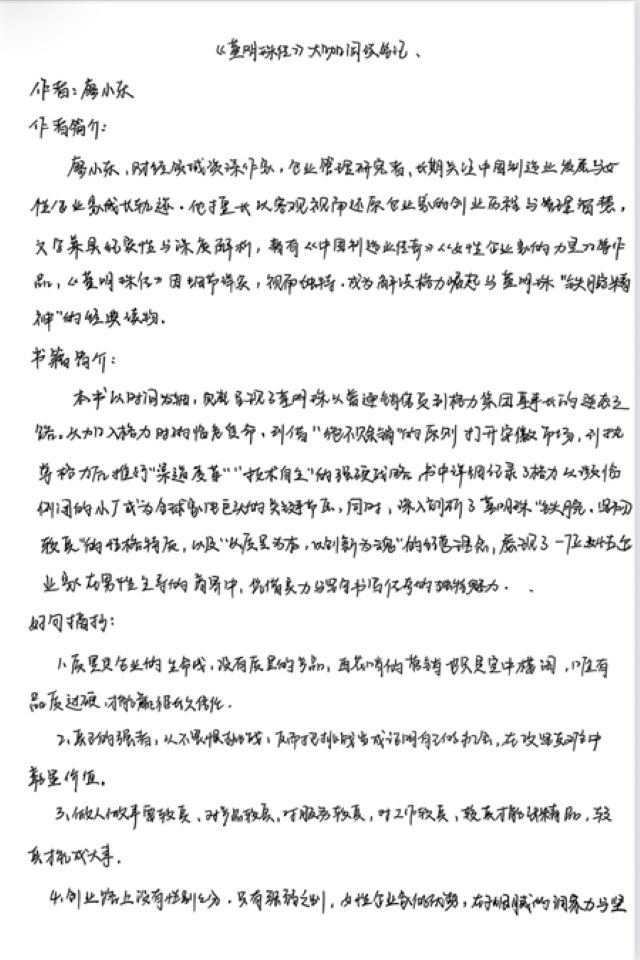 《董明珠传》大加阅读笔记、
作者：廖小东
作者简介：
廖小东，财经领域资深作家，企业管理研究者、长期关注中国制造业发展与女
性企业家成长轨迹。他擅长以客观视角还原企业家的创业历程与管理智慧，
文字兼具纪实性与深度解析，著有《中国制造业传奇》《女性企业家的力量》等作
品，《董明珠传》因细节详实，视角独特，成为解读格力崛起与董明珠“铁腕精
神”的经典读物。
书籍简介：
本书以时间为轴，完整呈现了董明珠从普通销售员到格力集团董事长的逆袭之
路。从加入格力时的临危受命，到借“绝不赊销”的原则打开安徽市场，到执
掌格力后推行“渠道变革”“技术自主”的强硬战略，书中详细记录了格力从濒临
倒闭的小厂成为全球家电巨头的关键节点，同时，深入剖析了董明珠“铁腕、坚韧
较真”的性格特质，以及“以质量为本，以创新为魂”的经营理念，展现了一位女性企
业家在男性主导的商界中，凭借实力与坚守书写传奇的独特魅力．
好句摘抄：
1、质量是企业的生命线，没有质量的产品，再花哨的营销也只是空中楼阁，唯有
品质过硬，才能赢得长久信任．
2、真正的强者，从不畏惧挑战，反而把挑战当成证明自己的机会，在攻坚克难中
彰显价值。
3、做人做事要较真、对产品较真，对服务较真，对工作较真，较真才能出精品，较
真才能成大事．
4、创业路上没有性别之分．只有强弱之别，女性企业家的优势，在于细腻的洞察力与坚